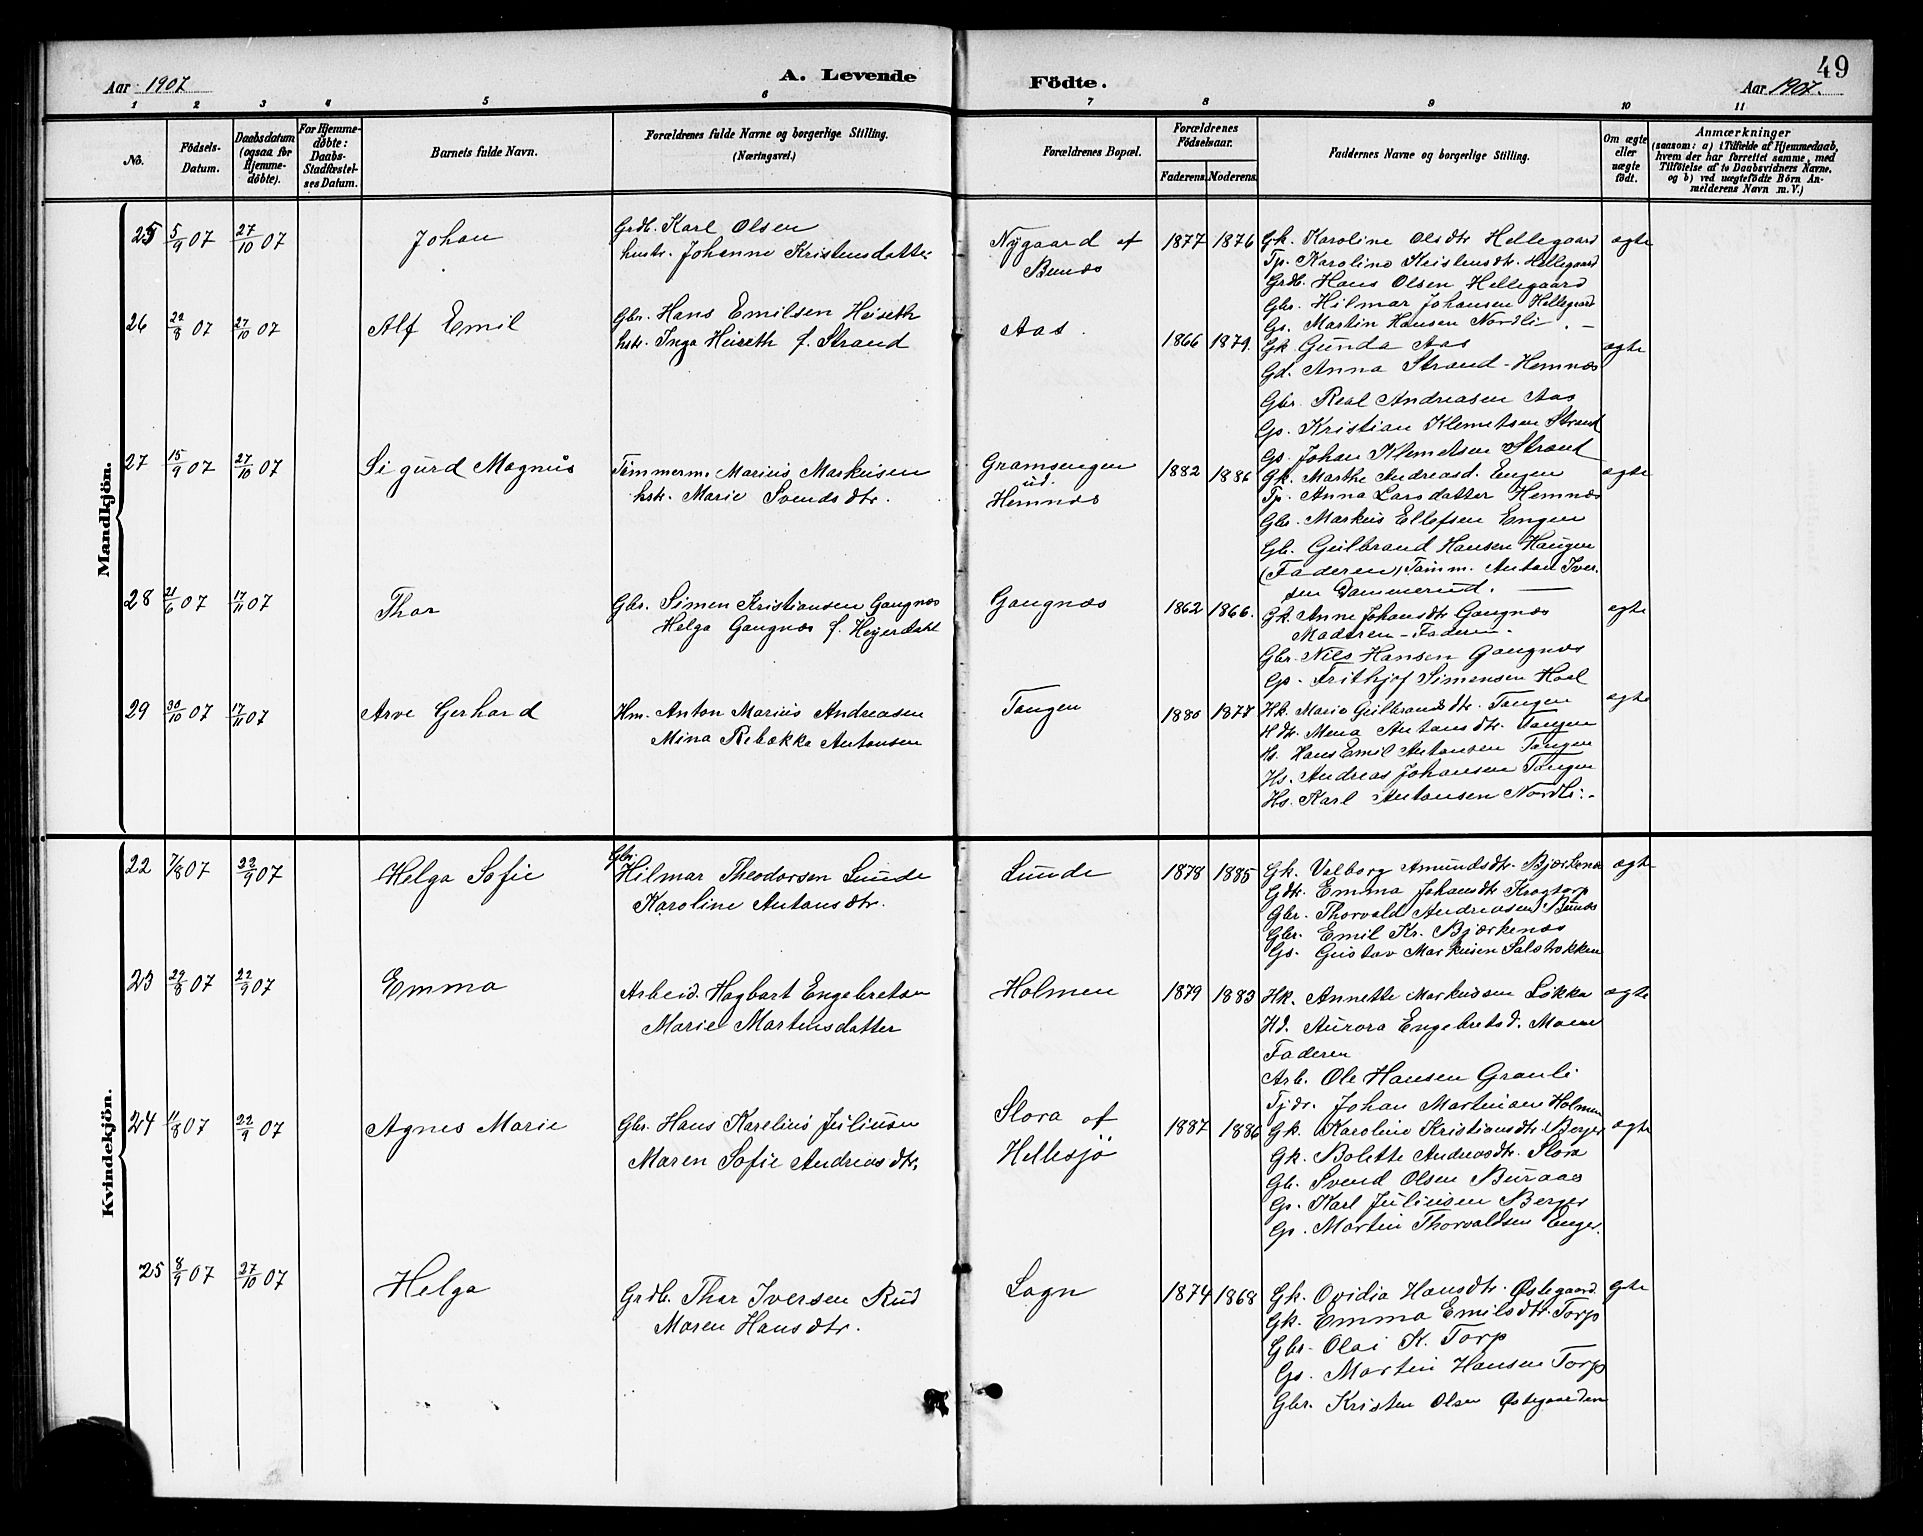 49
Aar 1907 A. Levende Födte. Aar 1907.
1 2 3 4 5 6 7 8 9 10 11
No.
Födsels-
Datum.
Daabsdatum
(ogsaa for
Hjemme-
döbte).
For Hjemme-
döbte:
Daabs-
Stadfæstel-
ses Datum.
Barnets fulde Navn.
Forældrenes fulde Navne og borgerlige Stilling.
(Næringsvei.)
Forældrenes Bopæl.
Forældrenes
Födselsaar.
Faderens. Moderens.
Faddernes Navne og borgerlige Stilling.
Om ægte
eller
uægte
födt.
Anmærkninger
(saasom: a) i Tilfælde af Hjemmedaab,
hvem der har forrettet samme, med
Tilföielse af to Daabsvidners Navne.
og b) ved uægtefödte Börn An-
melderens Navn m. V.)
Mandkjön.
25 5/9 07 27/10 07 Johan
Grdb. Karl Olsen
hustr. Johanne Kristensdatter
Nygaard af
Bunes
1877 1876
Gk. Karoline Olsdtr Hellegaard
Tp. Karoline Kristensdtr. Hellegaard
Grdb. Hans Olsen Hellegaard
Gbr. Hilmar Johansen Hellegaard
Gs. Martin Hansen Nordli
ægte
26 22/8 07 27/10 07 Alf Emil
Gbr. Hans Emilsen Heiseth
hstr. Inga Heiseth f. Strand
Aas.
1866 1879.
Gk Gunda Aas
Gd. Anna Strand - Hemnæs
Gbr. Real Andreasen Aas
Gs. Kristian Klemetsen Strand
Gs. Johan Klemetsen Strand
ægte
27 15/9 07 27/10 07 Sigurd Magnus
Timmerm. Marius Markusen
hstr. Marie Svendsdtr.
Gramsengen
ud.
Hemnæs
1882 1886
Gk. Marthe Andreasd. Engen
Tp. Anna Larsdatter Hemnæs
Gbr. Markus Ellefsen Engen
Gb. Gulbrand Hansen Haugen
(Faderen) Tømm. Anton Iver-
sen Dammerud.
ægte
28 21/6 07 17/11 07 Thor
Gbr. Simen Kristiansen Gangnæs
Helga Gangnæs f. Heyerdahl
Gangnæs
1862 1866.
Gk. Anne Johansdtr Gangnæs
Moderen - Faderen.
Gbr. Nils Hansen Gangnæs
Gs. Frithjof Simensen Hoel
ægte
29 30/10 07 17/11 07 Arve Gerhard
Hm. Anton Marius Andreasen
Mina Rebækka Antonsen
Tangen
1880 1877
Hk. Marie Gulbrandsdtr. Tangen
Hdtr. Mena Antonsdtr. Tangen
Hs. Hans Emil Antonsen Tangen
Hs. Andreas Johansen Tangen
Hs. Karl Antonsen Nordli.
ægte
Kvindekjön.
22 7/8 07 22/9 07 Helga Sofie
Gbr.
Hilmar Theodorsen Lunde
Karoline Antonsdtr.
Lunde
1878 1885
Gk. Valborg Amundsdtr. Bjærkenæs
Gdtr. Emma Johansdtr Krogtorp
Gbr. Thorvald Andreasen Bunæs
Gbr. Emil Kr. Bjærkenæs
Gs. Gustav Markusen Salsbakken
ægte
23 29/8 07 22/9 07 Emma
Arbeid. Hagbart Engebretsen
Marie Martinsdatter
Holmen
1879 1883
Hk. Annette Markussen Løkka
Hd. Aurora Engebretsd. Moen
Faderen
Arb. Ole Hansen Granli
Tjdr. Johan Martinsen Holmen
ægte
24 11/8 07 22/9 07 Agnes Marie
Gbr. Hans Karelius Juliusen
Maren Sofie Andreasdtr.
Slora af
Hellesjö
1887 1886
Gk. Karoline Kristiansdtr. Berger
Gk. Bolette Andreasdtr. Slora
Gb. Svend Olsen Buraas
Gs. Karl Juliusen Berger
Gs. Martin Thorvaldsen Enger.
ægte
25 8/9 07 27/10 07 Helga
Grdb. Thor Iversen Rud
Maren Hansdtr.
Sogn
1874 1868
Gk. Ovidia Hansdtr. Østegaard.
Gk. Emma Emilsdtr. Torp
Gbr. Olai K. Torp
Gs. Martin Hansen Torp
Gbr. Kristen Olsen Østegaarden